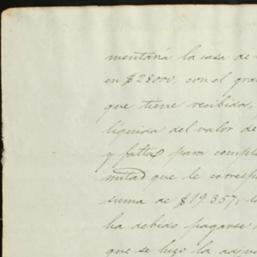 mentaria la casa de
en $28000, con el gra
que tiene recibida,
líquida del valor de
y faltas para comple
mitad que le corresp
suma de $19.357, l
ha debido pagarse
que se hizo la adju